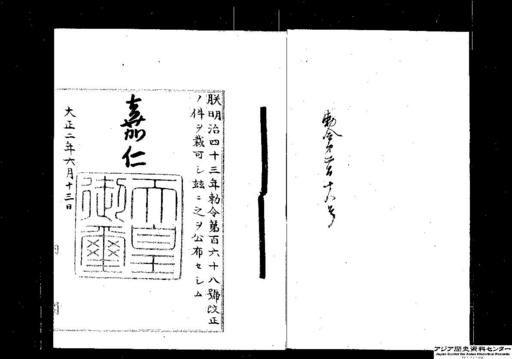 勅令第二百十八号
朕明治四十三年勅令第百六十八號改正
ノ件ヲ裁可シ茲ニ之ヲ公布セシム
嘉仁
天皇
御璽
大正二年六月十三日
アジア歴史資料センター
Japan Center for Asian Historical Records